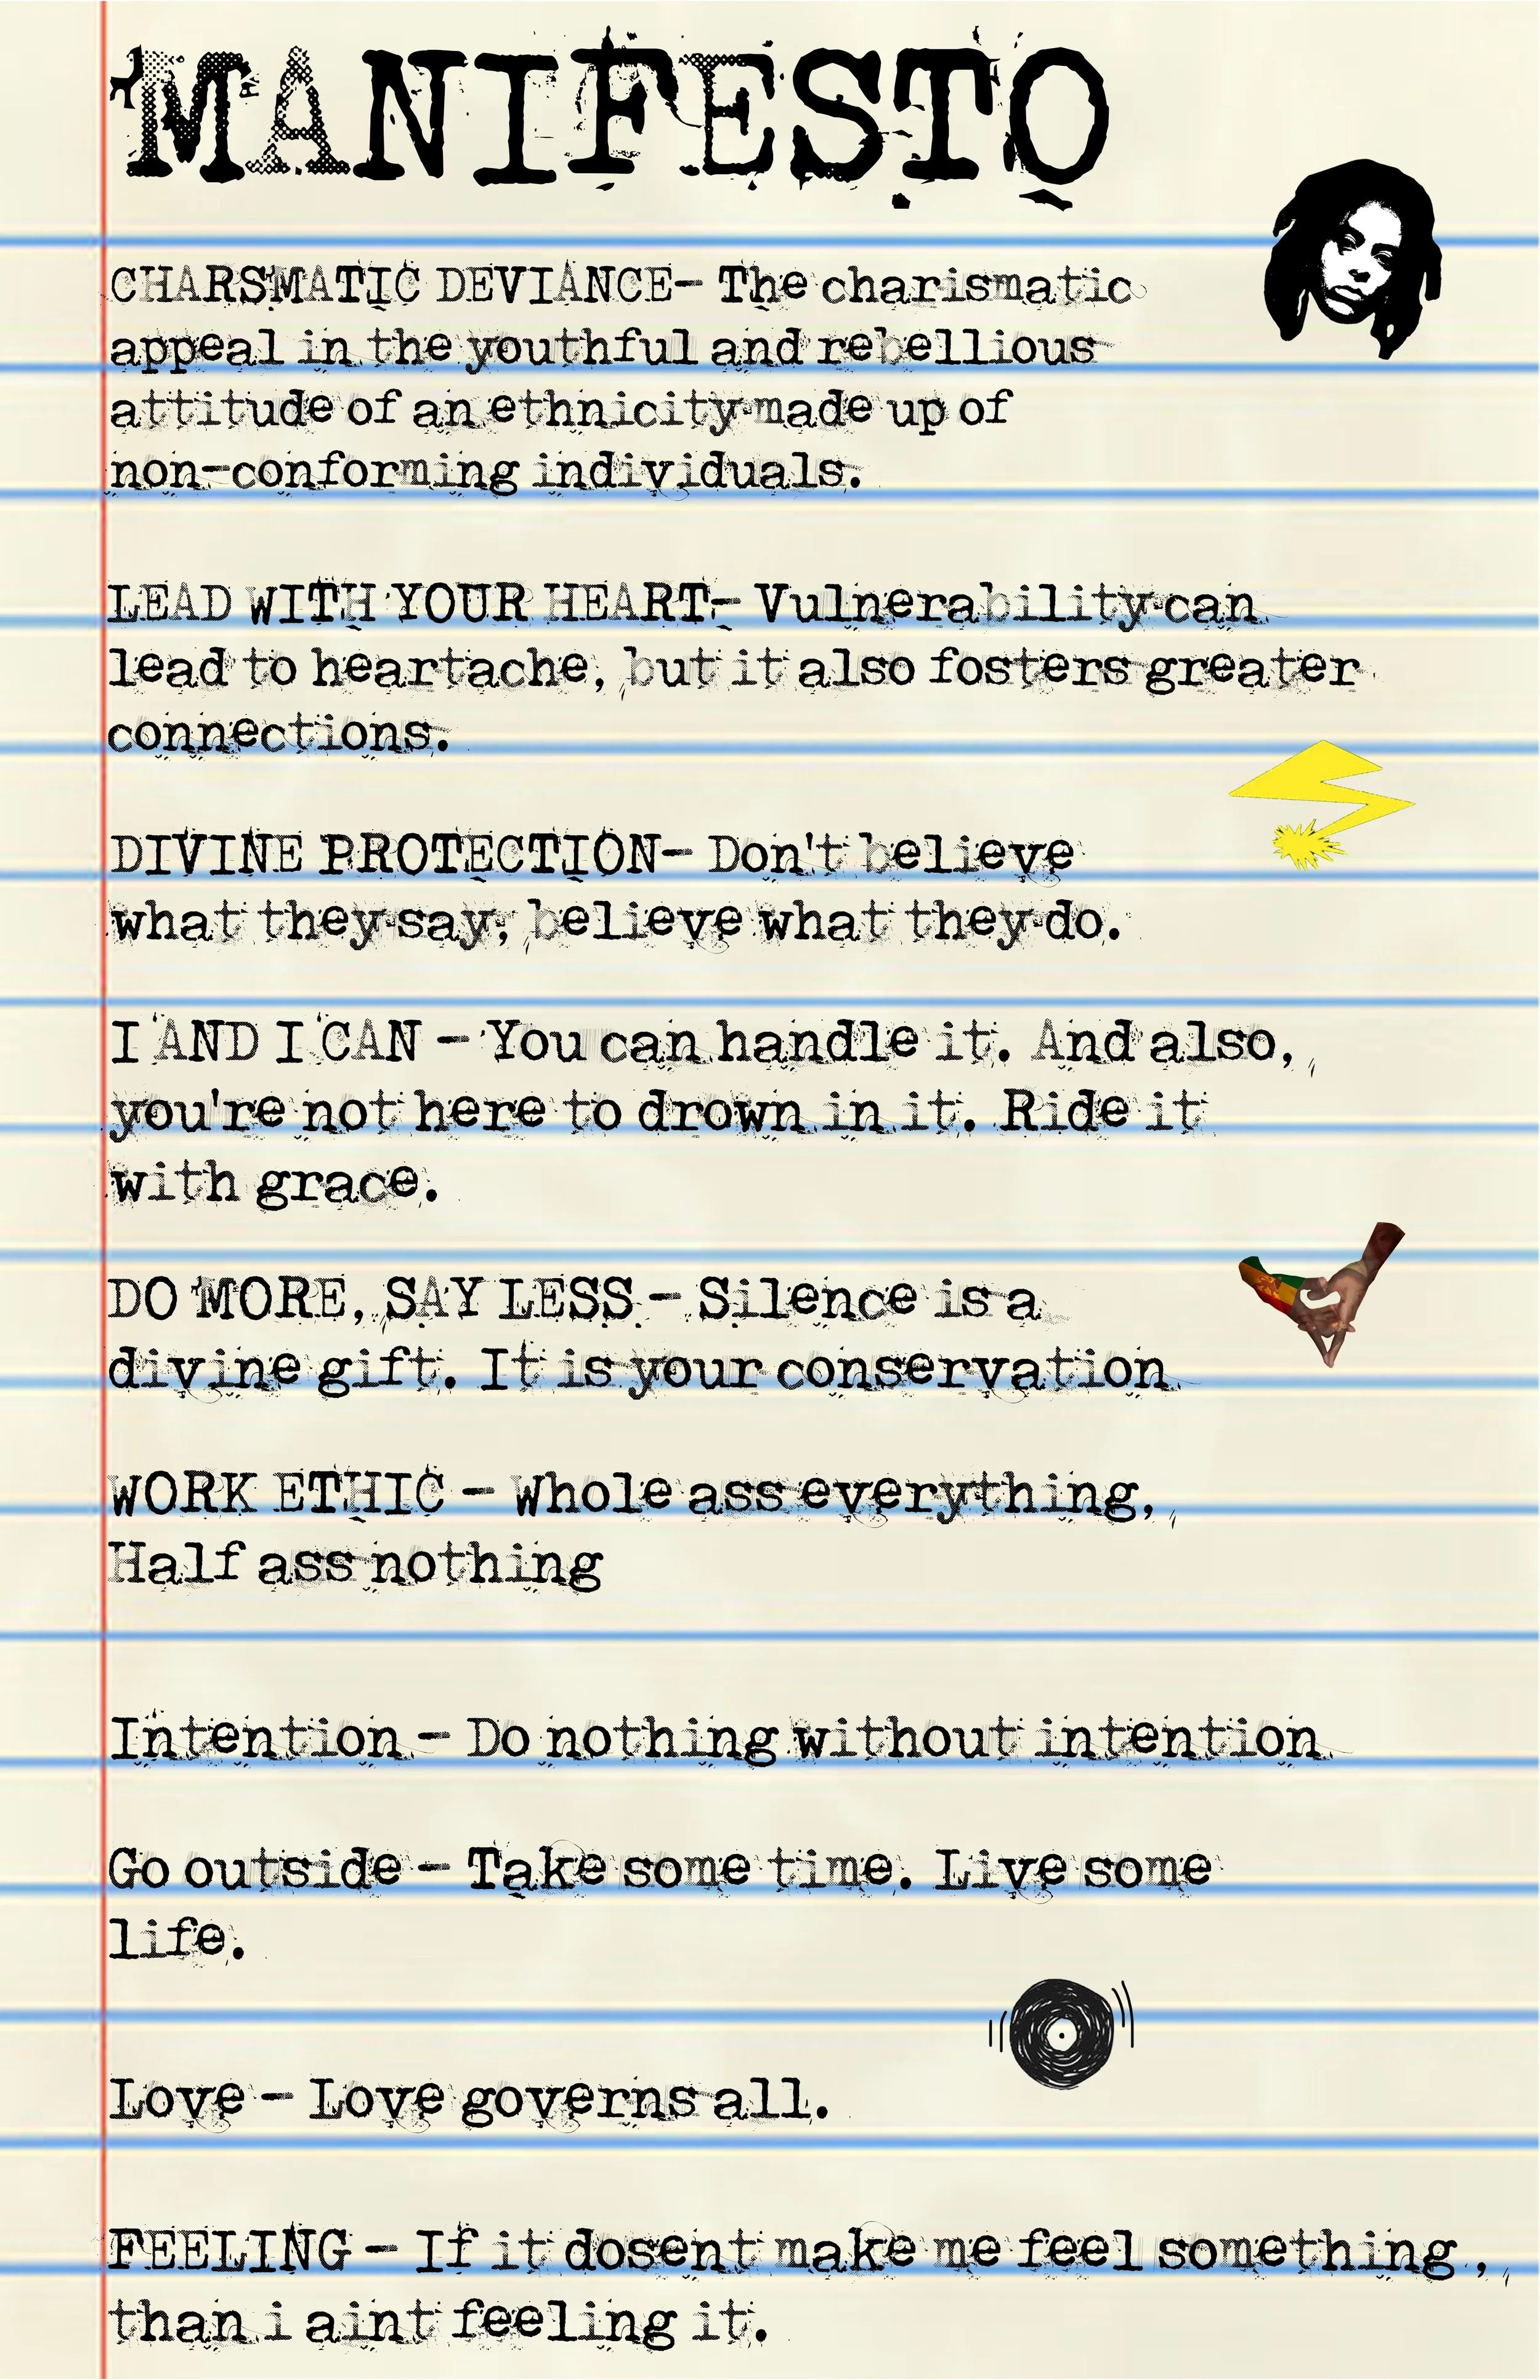 MANIFESTO
CHARSMATIC DEVIANCE- The charismatic
appeal in the youthful and rebellious
attitude of an ethnicity made up of
non-conforming individuals.
LEAD WITH YOUR HEART- Vulnerability can
lead to heartache, but it also fosters greater
connections.
DIVINE PROTECTION- Don't believe
what they say, believe what they do.
I AND I CAN - You can handle it. And also,
you're not here to drown in it. Ride it
with grace.
DO MORE, SAY LESS - Silence is a
divine gift. It is your conservation
WORK ETHIC - Whole ass everything,
Half ass nothing
Intention - Do nothing without intention
Go outside - Take some time. Live some
life.
Love - Love governs all.
FEELING - If it dosent make me feel something ,
than i aint feeling it.